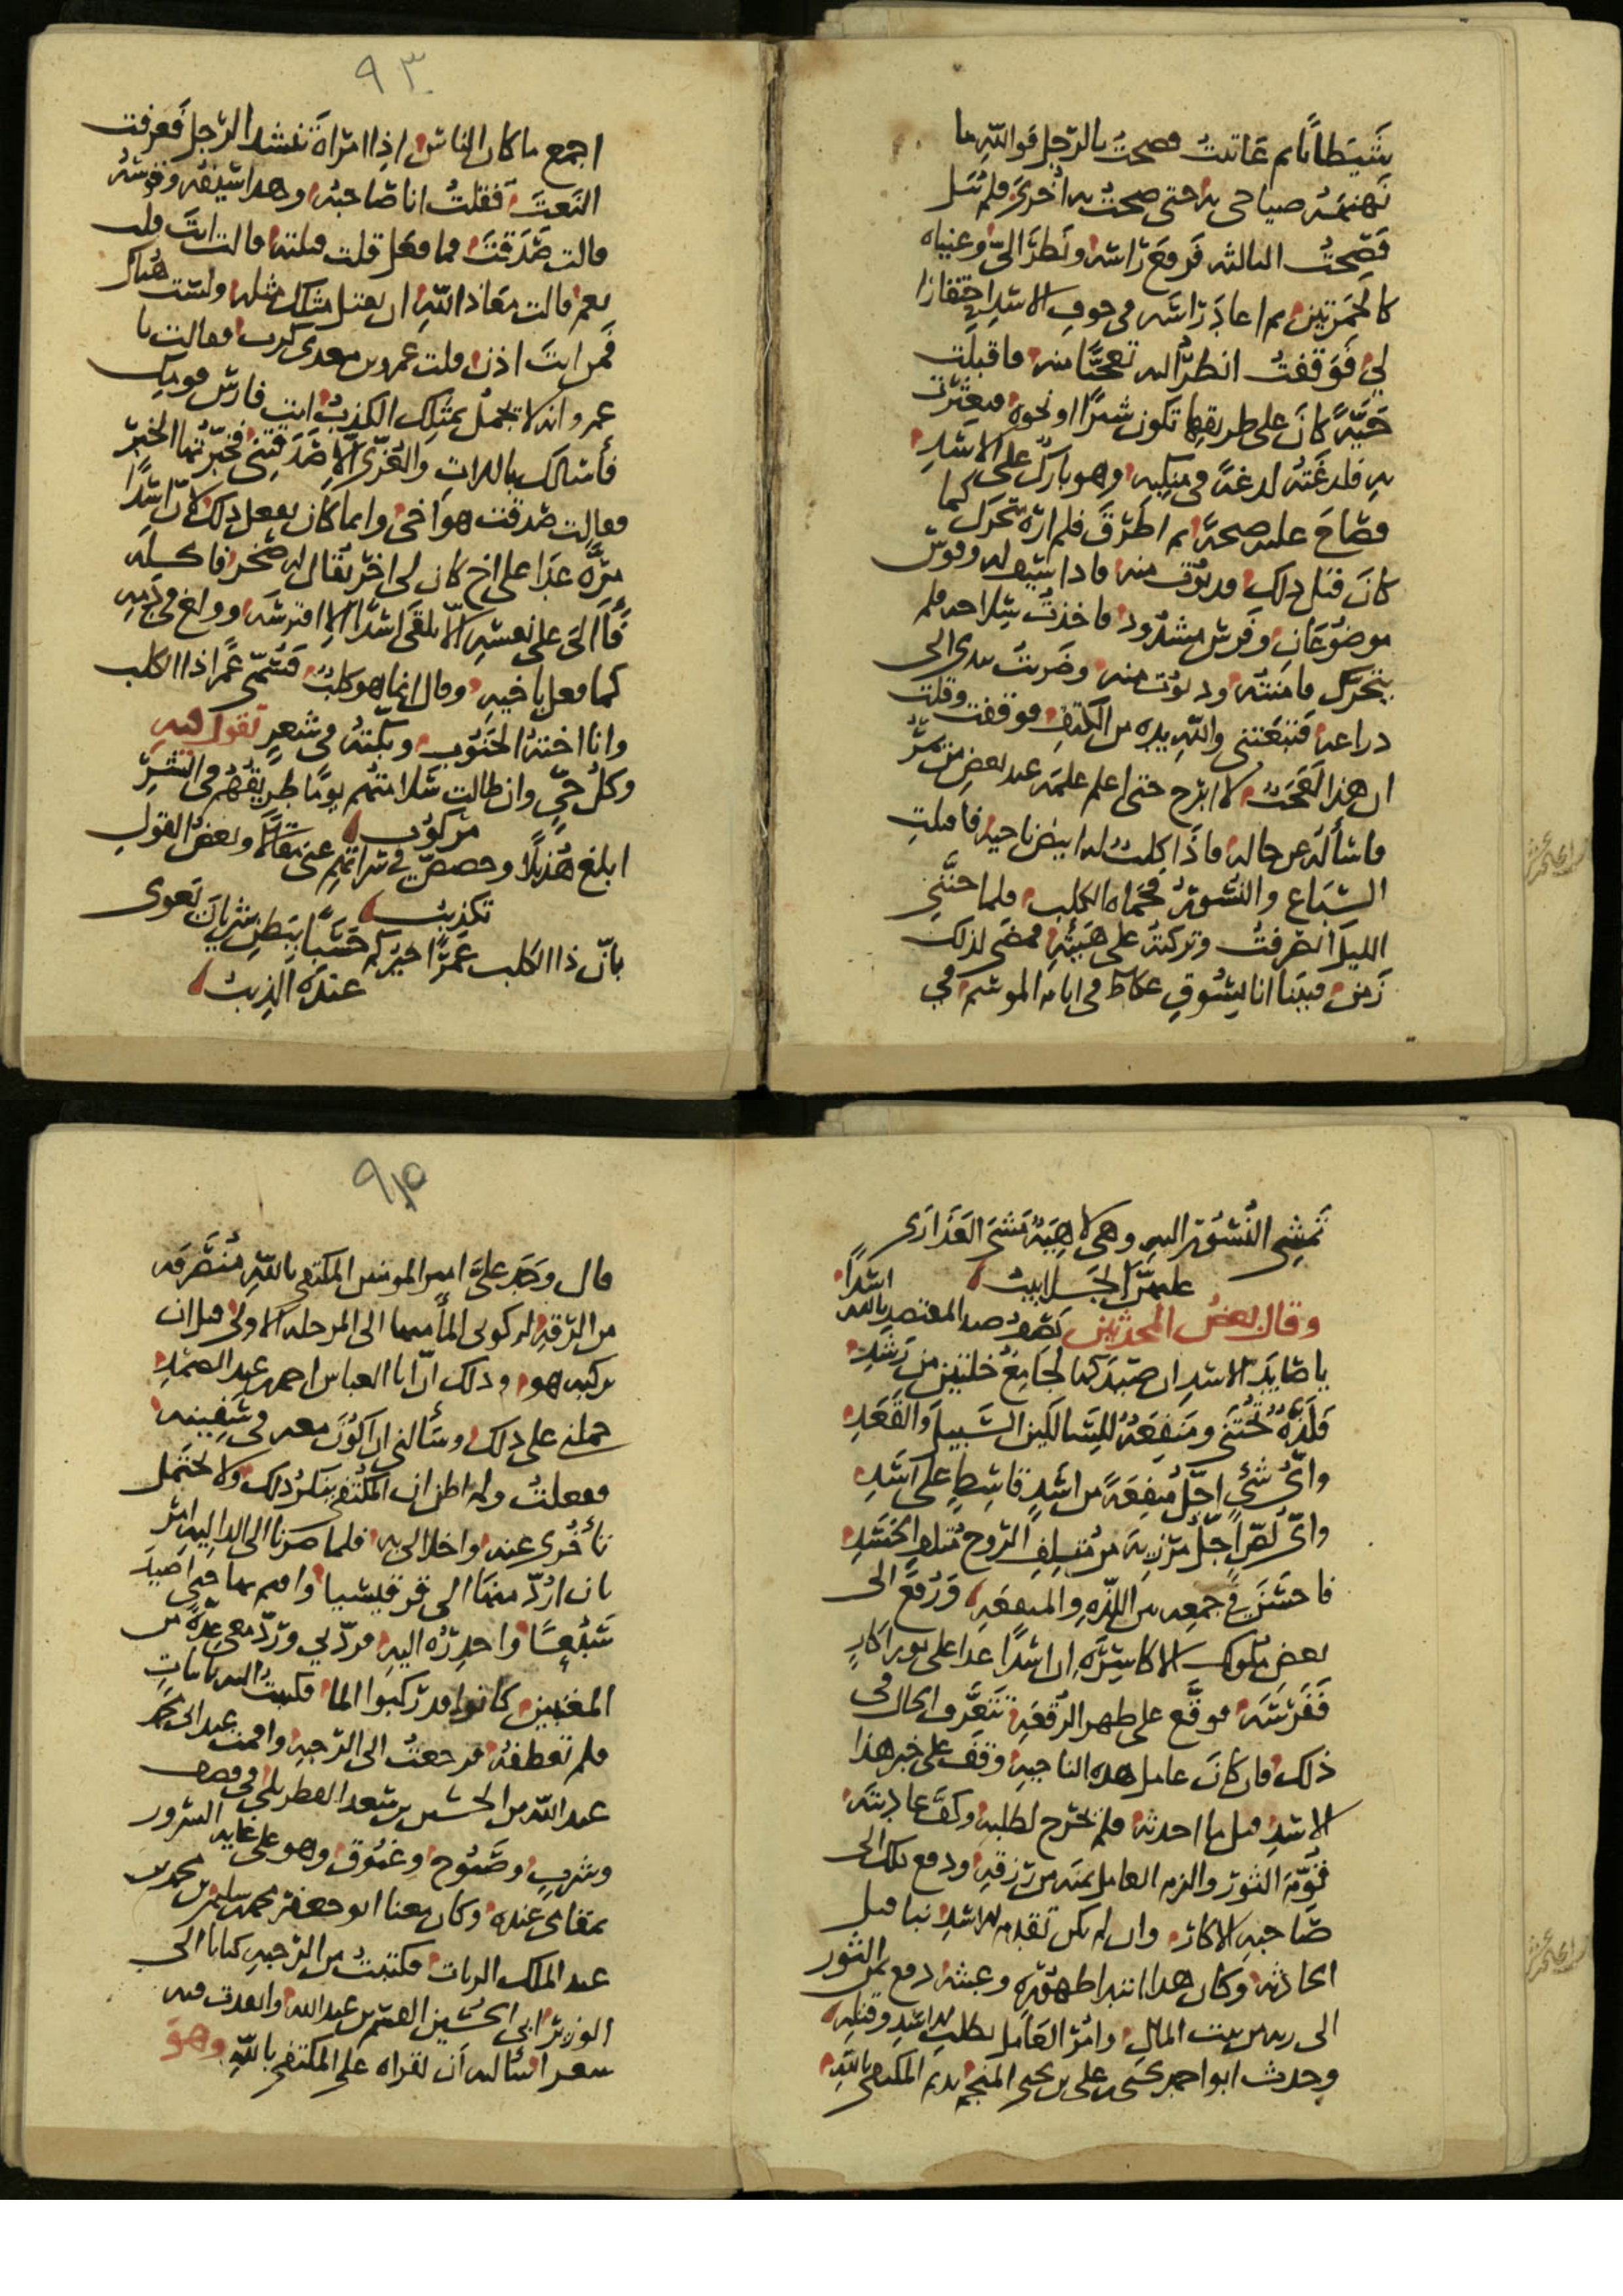 شيطانا ثم عاتبت فصحت بالرجل فوالله ما
نهنهه صياحى به حتى صحت به أخرى فلم يبل
فصحت الثالثه فرفع راسه ونظر الىّ وعيناه
كالجمرتين ثم اعاد راسه فى جوف الاسد احتقارا
لى فوقفت انظر اليه تعجبا منه فاقبلت
حيّة كان على طريقها تكون شبرا او نحوه فعثرت
به فلدغته لدغة فى منكبه وهو بارك على الاسد
فصاح عليه صيحة ثم اطرق فلم اره تحرك كما
كان قبل ذلك فدنوت منه فاذا سيف له وقوس
موضوعان وفرس مشدود فاخذت سلاحه فلم
يتحرك فامنته ودنوت منه وضربت بيدى الى
دراعه فتبعتنى والله يده من الكتف فوقفت وقلت
ان هذا لعجب لا ابرح حتى اعلم علمه عند بعض من يمر
فاسأله عن حاله فاذا كلب له رابض ناحية فاقبلت
السباع والنسور فحماه الكلب فلما جننى
الليل انصرفت وتركته على هيئته فمضى لذلك
زمن فبينا انا بسوق عكاظ فى ايام الموسم فى
٩٣
اجمع ما كان الناس اذا امراة تنشد الرجل فعرفت
النعت فقلت انا صاحبه وهذا سيفه وفرسه
قالت صدقت فما فعل قلت قتلته قالت انت قلت
نعم قالت معاذ الله ان يقتل مثلك مثله ولست هناك
فمن انت اذن قلت عمرو بن معدى كرب فقالت يا
عمرو انه لا يجمل بمثلك الكذب انت فارس قومك
فأسالك باللات والعزّى الا صدقتنى فخبرتها الخبر
فقالت صدقت هو اخى وانما كان يفعل ذلك لان اسدا
مرّة عدا على اخ كان لى اخر يقال له صخر فاكله
فآلى على نفسه الا يلقى اسدا الا افترسه وولغ فى دمه
كما فعل باخيه وقال انما هو كلب فسُمّى عمرا ذا الكلب
وانا اخته الجنوب وبكته فى شعر تقول فيه
وكل حىّ وان طالت سلامتهم يوما طريقهم فى الشر
مركوب
ابلغ هذيلا وخصص فى سراتهم عنى مقالا وبعض القول
تكذيب
بانّ ذا الكلب عمرا خيركم حسبا ببطن شريان تعوى
عنده الذيب
تمشى النسور اليه وهى لاهية مشى العذارى
عليهن الجلابيب
وقال بعض المحدثين يصف صيد المعتضد بالله اسدا
يا صايد الاسد ان صيدكها لجامع خلتين من رشد
فلذة تجتنى ومنفعة للسالكين السبيل والقعد
واىّ شئ اجلّ منفعة من اسد قاسط على اسد
واىّ لص اجلّ مرزية من متلف الروح متلف الجسد
فاحسن فى جمعه من اللذة والمنفعه ورفع الى
بعض ملوك الاكاسرة ان اسدا عدا على ثور اكار
ففرسه فوقع على ظهر الرقعة تتعرف الحال فى
ذلك فان كان عامل هذه الناحية وقف على خبر هذا
الاسد قبل ما احدثه فلم يخرج لطلبه وكف عاديته
قوّم الثور والزم العامل ثمنه من رزقه ودفع ذلك الى
صاحبه الاكار وان لم يكن تقدم للاسد نبا قبل
الحادثة وكان هذا ابتدا ظهوره وعبثه دفع ثمن الثور
الى ربه من بيت المال وامر العامل بطلب الاسد وقتله
وحدث ابو احمد يحيى بن على بن يحيى المنجم نديم المكتفى بالله
٩٤
قال وجد علىّ امير المومنين المكتفى بالله منصرفه
من الرقة لركوبى الماء منها الى المرحله الاولى قبل ان
يركبه هو وذلك ان ابا العباس احمد بن عبد الصمد
حملنى على ذلك وسألنى ان اكون معه فى سفينته
ففعلت ولم اظن ان المكتفى ينكر ذلك ولا يحتمل
تأخرى عنه واخلالى به فلما صرنا الى الداليه امر
بان ارد منها الى قرقيسيا واقيم بها حتى اصيد
سبعا واحدره اليه فردّ بى وردّ معى عدّة من
المغنين كانوا قد ركبوا الما فكتبت اليه بابيات
فلم تعطفه فرجعت الى الرحبة واقمت عند ابى محمد
عبد الله بن الحسين بن سعد القطربلى فى قصف
وشرب وصبوح وغبوق وهو على غاية السرور
بمقامى عنده وكان معنا ابو جعفر محمد بن سليمن بن محمد بن
عبد الملك الزيات فكتبت من الرحبة كتابا الى
الوزير ابى الحسين القسم بن عبد الله وانفذت فيه
شعرا اساله ان يقراه على المكتفى بالله وهو